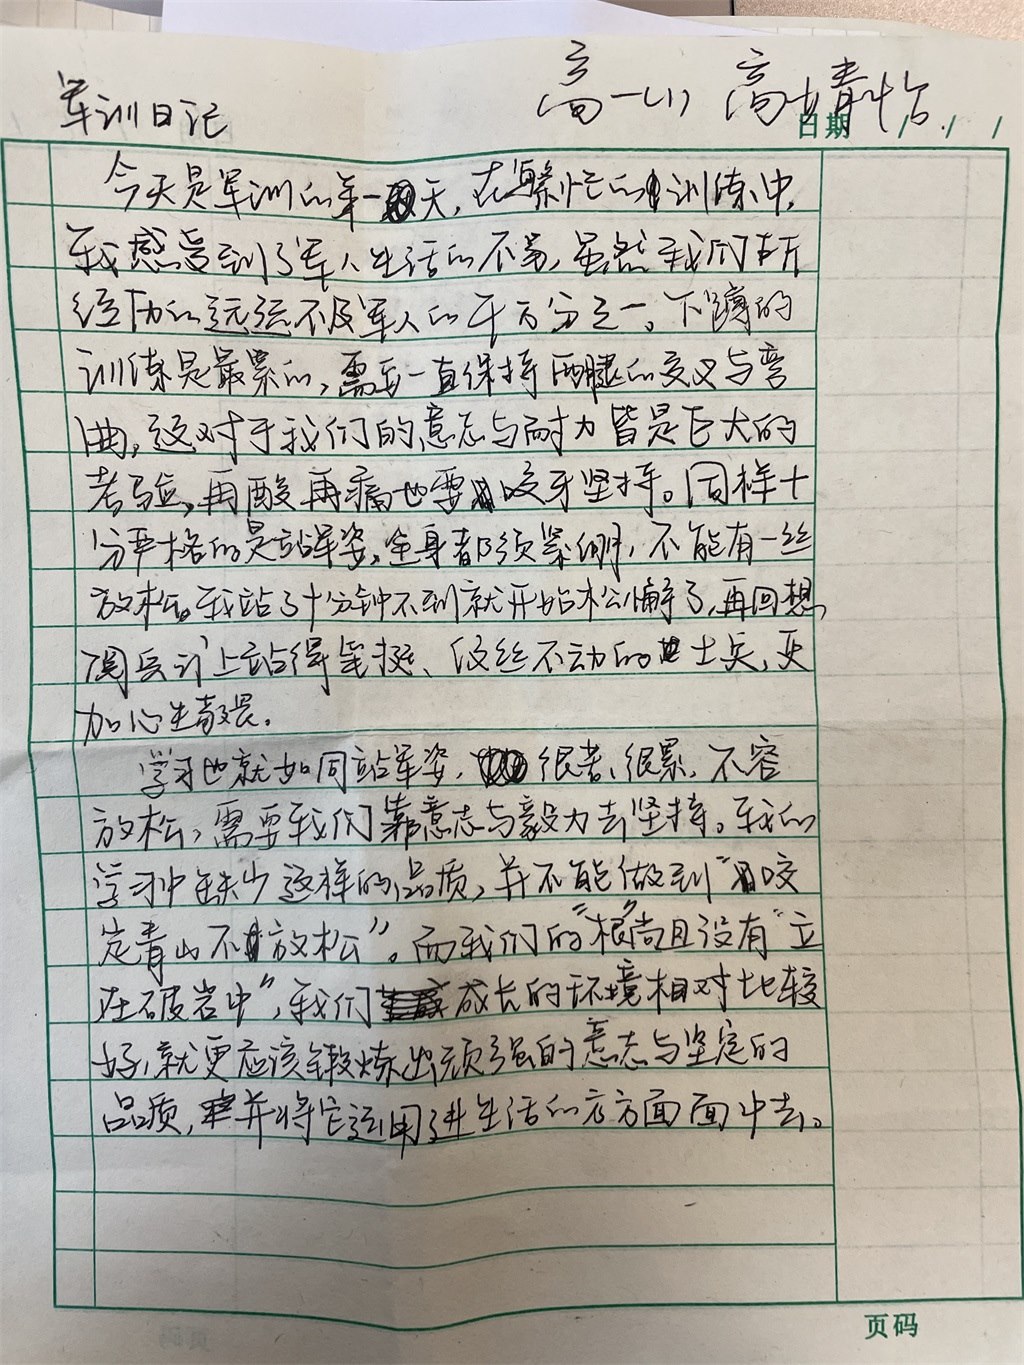 军训日记
高一(1) 高婧怡
日期 / / /
今天是军训的第一天,在繁忙的训练中,
我感受到了军人生活的不易,虽然我们所
经历的远远不及军人的千百分之一。下蹲的
训练是最累的,需要一直保持两腿的交叉与弯
曲,这对于我们的意志与耐力皆是巨大的
考验,再酸再痛也要咬牙坚持。同样十
分严格的是站军姿,全身都须紧绷,不能有一丝
放松。我站了十分钟不到就开始松懈了,再回想
阅兵时站得笔挺、纹丝不动的士兵,更
加心生敬畏。
学习也就如同站军姿,很苦、很累,不容
放松,需要我们靠意志与毅力去坚持。我的
学习中缺少这样的品质,并不能做到“咬
定青山不放松”。而我们的“根”尚且没有“立
在破岩中”,我们成长的环境相对比较
好,就更应该锻炼出顽强的意志与坚定的
品质,并将它运用进生活的方方面面中去。
页码